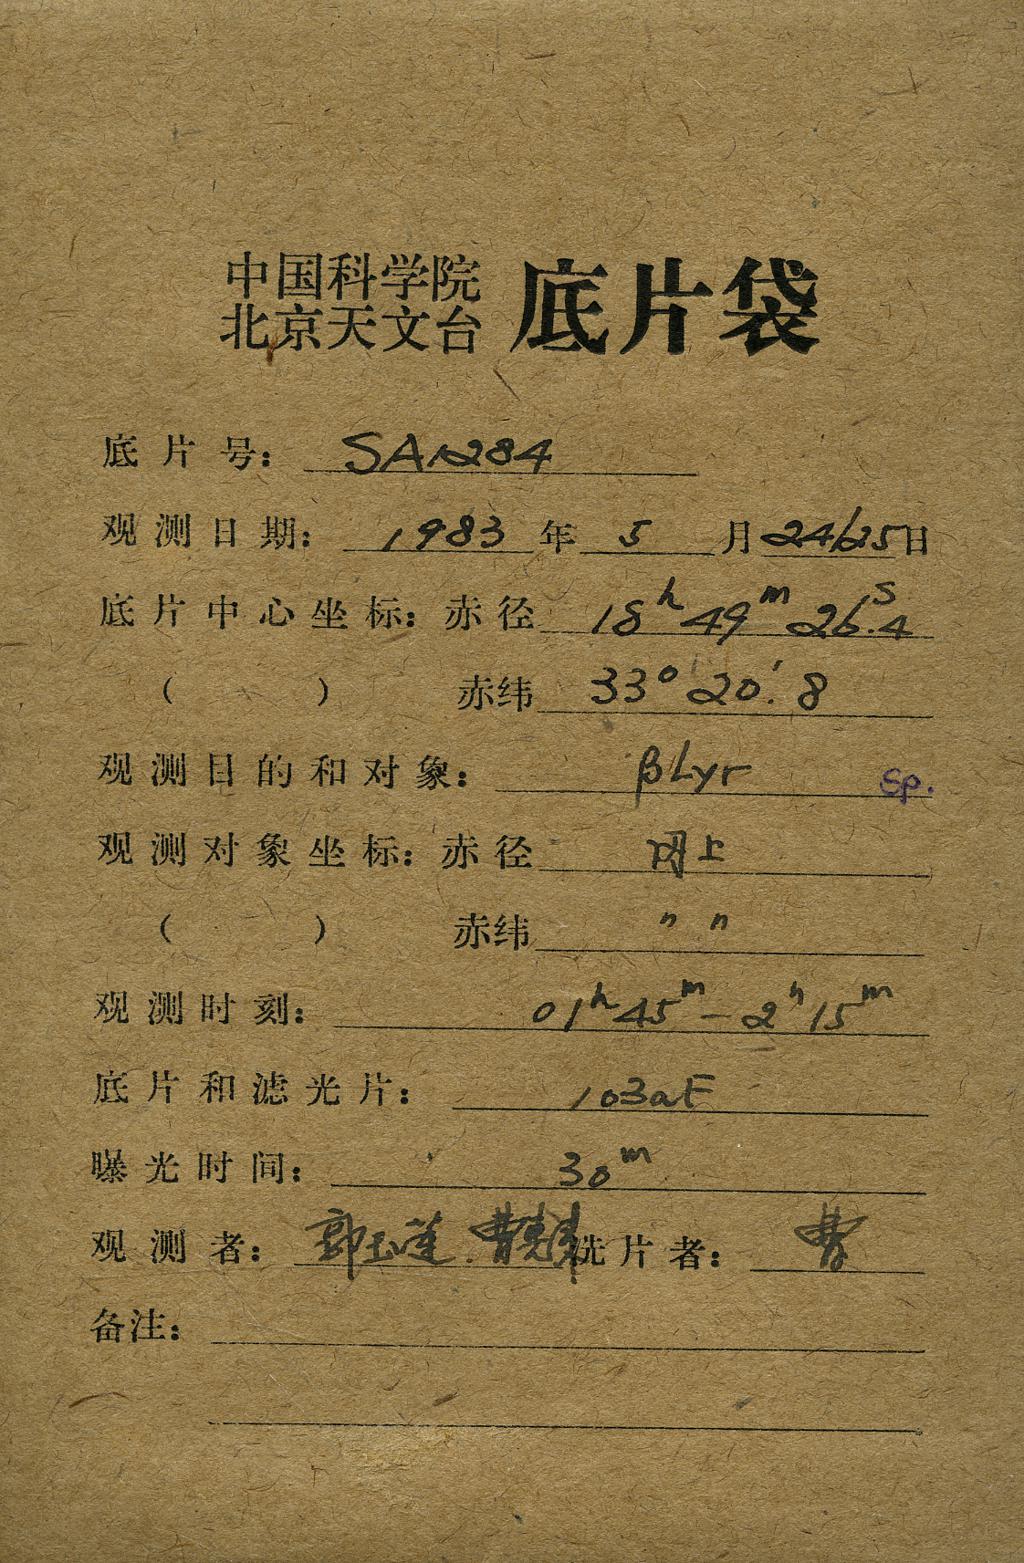 中国科学院
北京天文台
底片袋
底片号: SA1284
观测日期: 1983 年 5 月 24/25 日
底片中心坐标: 赤径 18h 49m 26s.4
( ) 赤纬 33° 20'.8
观测目的和对象: β Lyr Sp.
观测对象坐标: 赤径 同上
( ) 赤纬 " "
观测时刻: 01h 45m — 2h 15m
底片和滤光片: 103aF
曝光时间: 30m
观测者: 郭玉莲 曹 洗片者: 曹
备注: